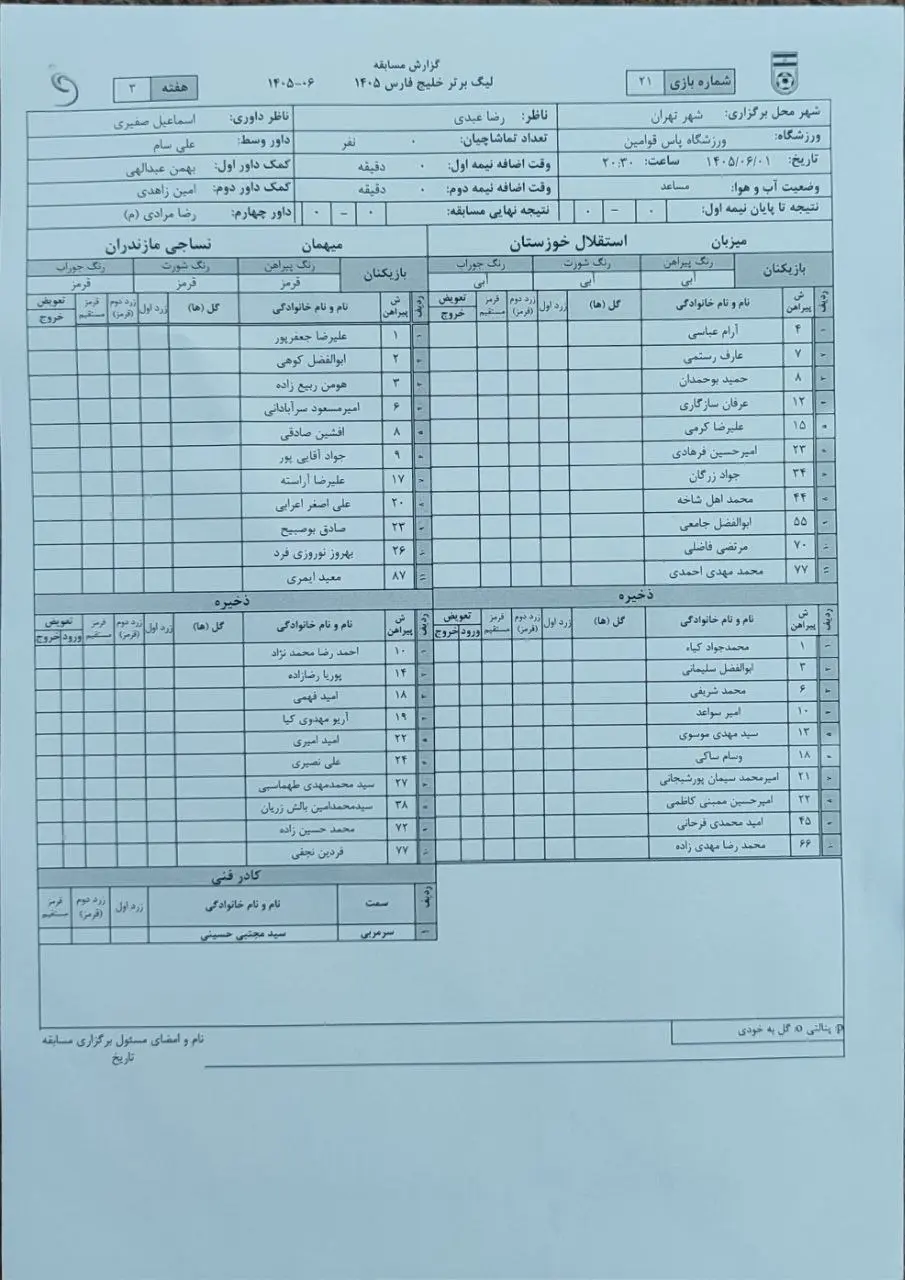 گزارش مسابقه
لیگ برتر خلیج فارس ۱۴۰۵ ۱۴۰۵-۰۶
شماره بازی ۲۱
هفته ۳
شهر محل برگزاری: شهر تهران
ورزشگاه: ورزشگاه پاس قوامین
تاریخ: ۱۴۰۵/۰۶/۰۱ ساعت: ۲۰:۳۰
وضعیت آب و هوا: مساعد
نتیجه تا پایان نیمه اول: ۰ – ۰
ناظر: رضا عبدی
تعداد تماشاچیان: ۰ نفر
وقت اضافه نیمه اول: ۰ دقیقه
وقت اضافه نیمه دوم: ۰ دقیقه
نتیجه نهایی مسابقه: ۰ – ۰
ناظر داوری: اسماعیل صفیری
داور وسط: علی سام
کمک داور اول: بهمن عبدالهی
کمک داور دوم: امین زاهدی
داور چهارم: رضا مرادی (م)
میزبان استقلال خوزستان
بازیکنان رنگ پیراهن رنگ شورت رنگ جوراب
آبی آبی آبی
ردیف ش پیراهن نام و نام خانوادگی گل (ها) زرد اول زرد دوم (قرمز) قرمز مستقیم تعویض خروج
۴ آرام عباسی
۷ عارف رستمی
۸ حمید بوحمدان
۱۲ عرفان سازگاری
۱۵ علیرضا کرمی
۲۳ امیرحسین فرهادی
۳۴ جواد زرگان
۴۴ محمد اهل شاخه
۵۵ ابوالفضل جامعی
۷۰ مرتضی فاضلی
۷۷ محمد مهدی احمدی
ذخیره
ردیف ش پیراهن نام و نام خانوادگی گل (ها) زرد اول زرد دوم (قرمز) قرمز مستقیم تعویض ورود خروج
۱ محمدجواد کیاه
۳ ابوالفضل سلیمانی
۶ محمد شریفی
۱۰ امیر سواعد
۱۳ سید مهدی موسوی
۱۸ وسام ساکی
۲۱ امیرمحمد سیمان پورشیجانی
۲۲ امیرحسین ممبنی کاظمی
۴۵ امید محمدی فرحانی
۶۶ محمد رضا مهدی زاده
میهمان نساجی مازندران
بازیکنان رنگ پیراهن رنگ شورت رنگ جوراب
قرمز قرمز قرمز
ردیف ش پیراهن نام و نام خانوادگی گل (ها) زرد اول زرد دوم (قرمز) قرمز مستقیم تعویض خروج
۱ علیرضا جعفرپور
۲ ابوالفضل کوهی
۳ هومن ربیع زاده
۶ امیرمسعود سرآبادانی
۸ افشین صادقی
۹ جواد آقایی پور
۱۷ علیرضا آراسته
۲۰ علی اصغر اعرابی
۲۳ صادق بوصبیح
۲۶ بهروز نوروزی فرد
۸۷ معید ایمری
ذخیره
ردیف ش پیراهن نام و نام خانوادگی گل (ها) زرد اول زرد دوم (قرمز) قرمز مستقیم تعویض ورود خروج
۱۰ احمد رضا محمد نژاد
۱۴ پوریا رضازاده
۱۸ امید فهمی
۱۹ آریو مهدوی کیا
۲۲ امید امیری
۲۴ علی نصیری
۲۷ سید محمدمهدی طهماسبی
۳۸ سیدمحمدامین بالش زریان
۷۲ محمد حسین زاده
۷۷ فردین نجفی
کادر فنی
ردیف سمت نام و نام خانوادگی زرد اول زرد دوم (قرمز) قرمز مستقیم
۱ سرمربی سید مجتبی حسینی
P: پنالتی O: گل به خودی
نام و امضای مسئول برگزاری مسابقه
تاریخ